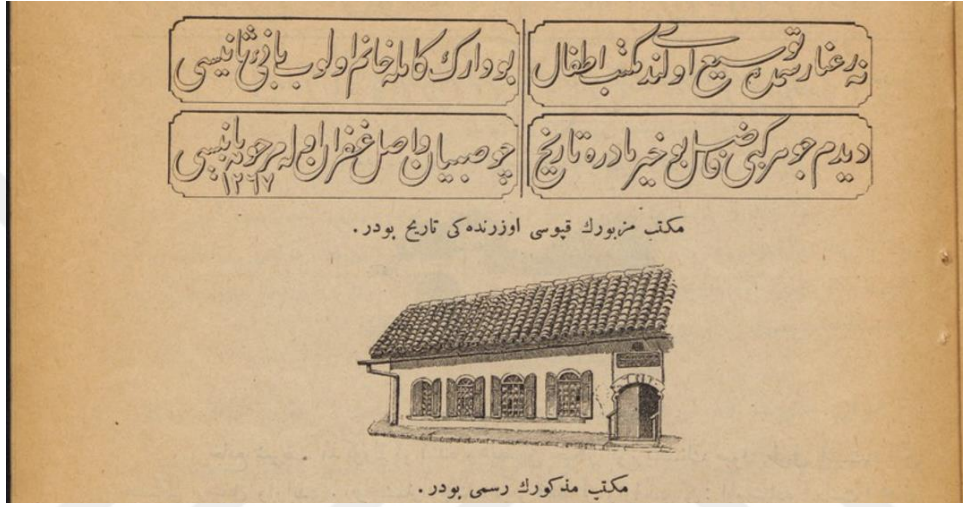 نه رعنا رسمدن توسیع اولندی مکتب اطفال بو دارك كامله خانم اولوب بانئ ثانیسی
دیدم جوهر كبی فاضل بو خیر مادره تاریخ چو صبیان واصل غفران اوله مرحومه بانیسی
١٢٦٧
مكتب مزبورك قپوسی اوزرنده كی تاریخ بودر .
مكتب مذكورك رسمی بودر .